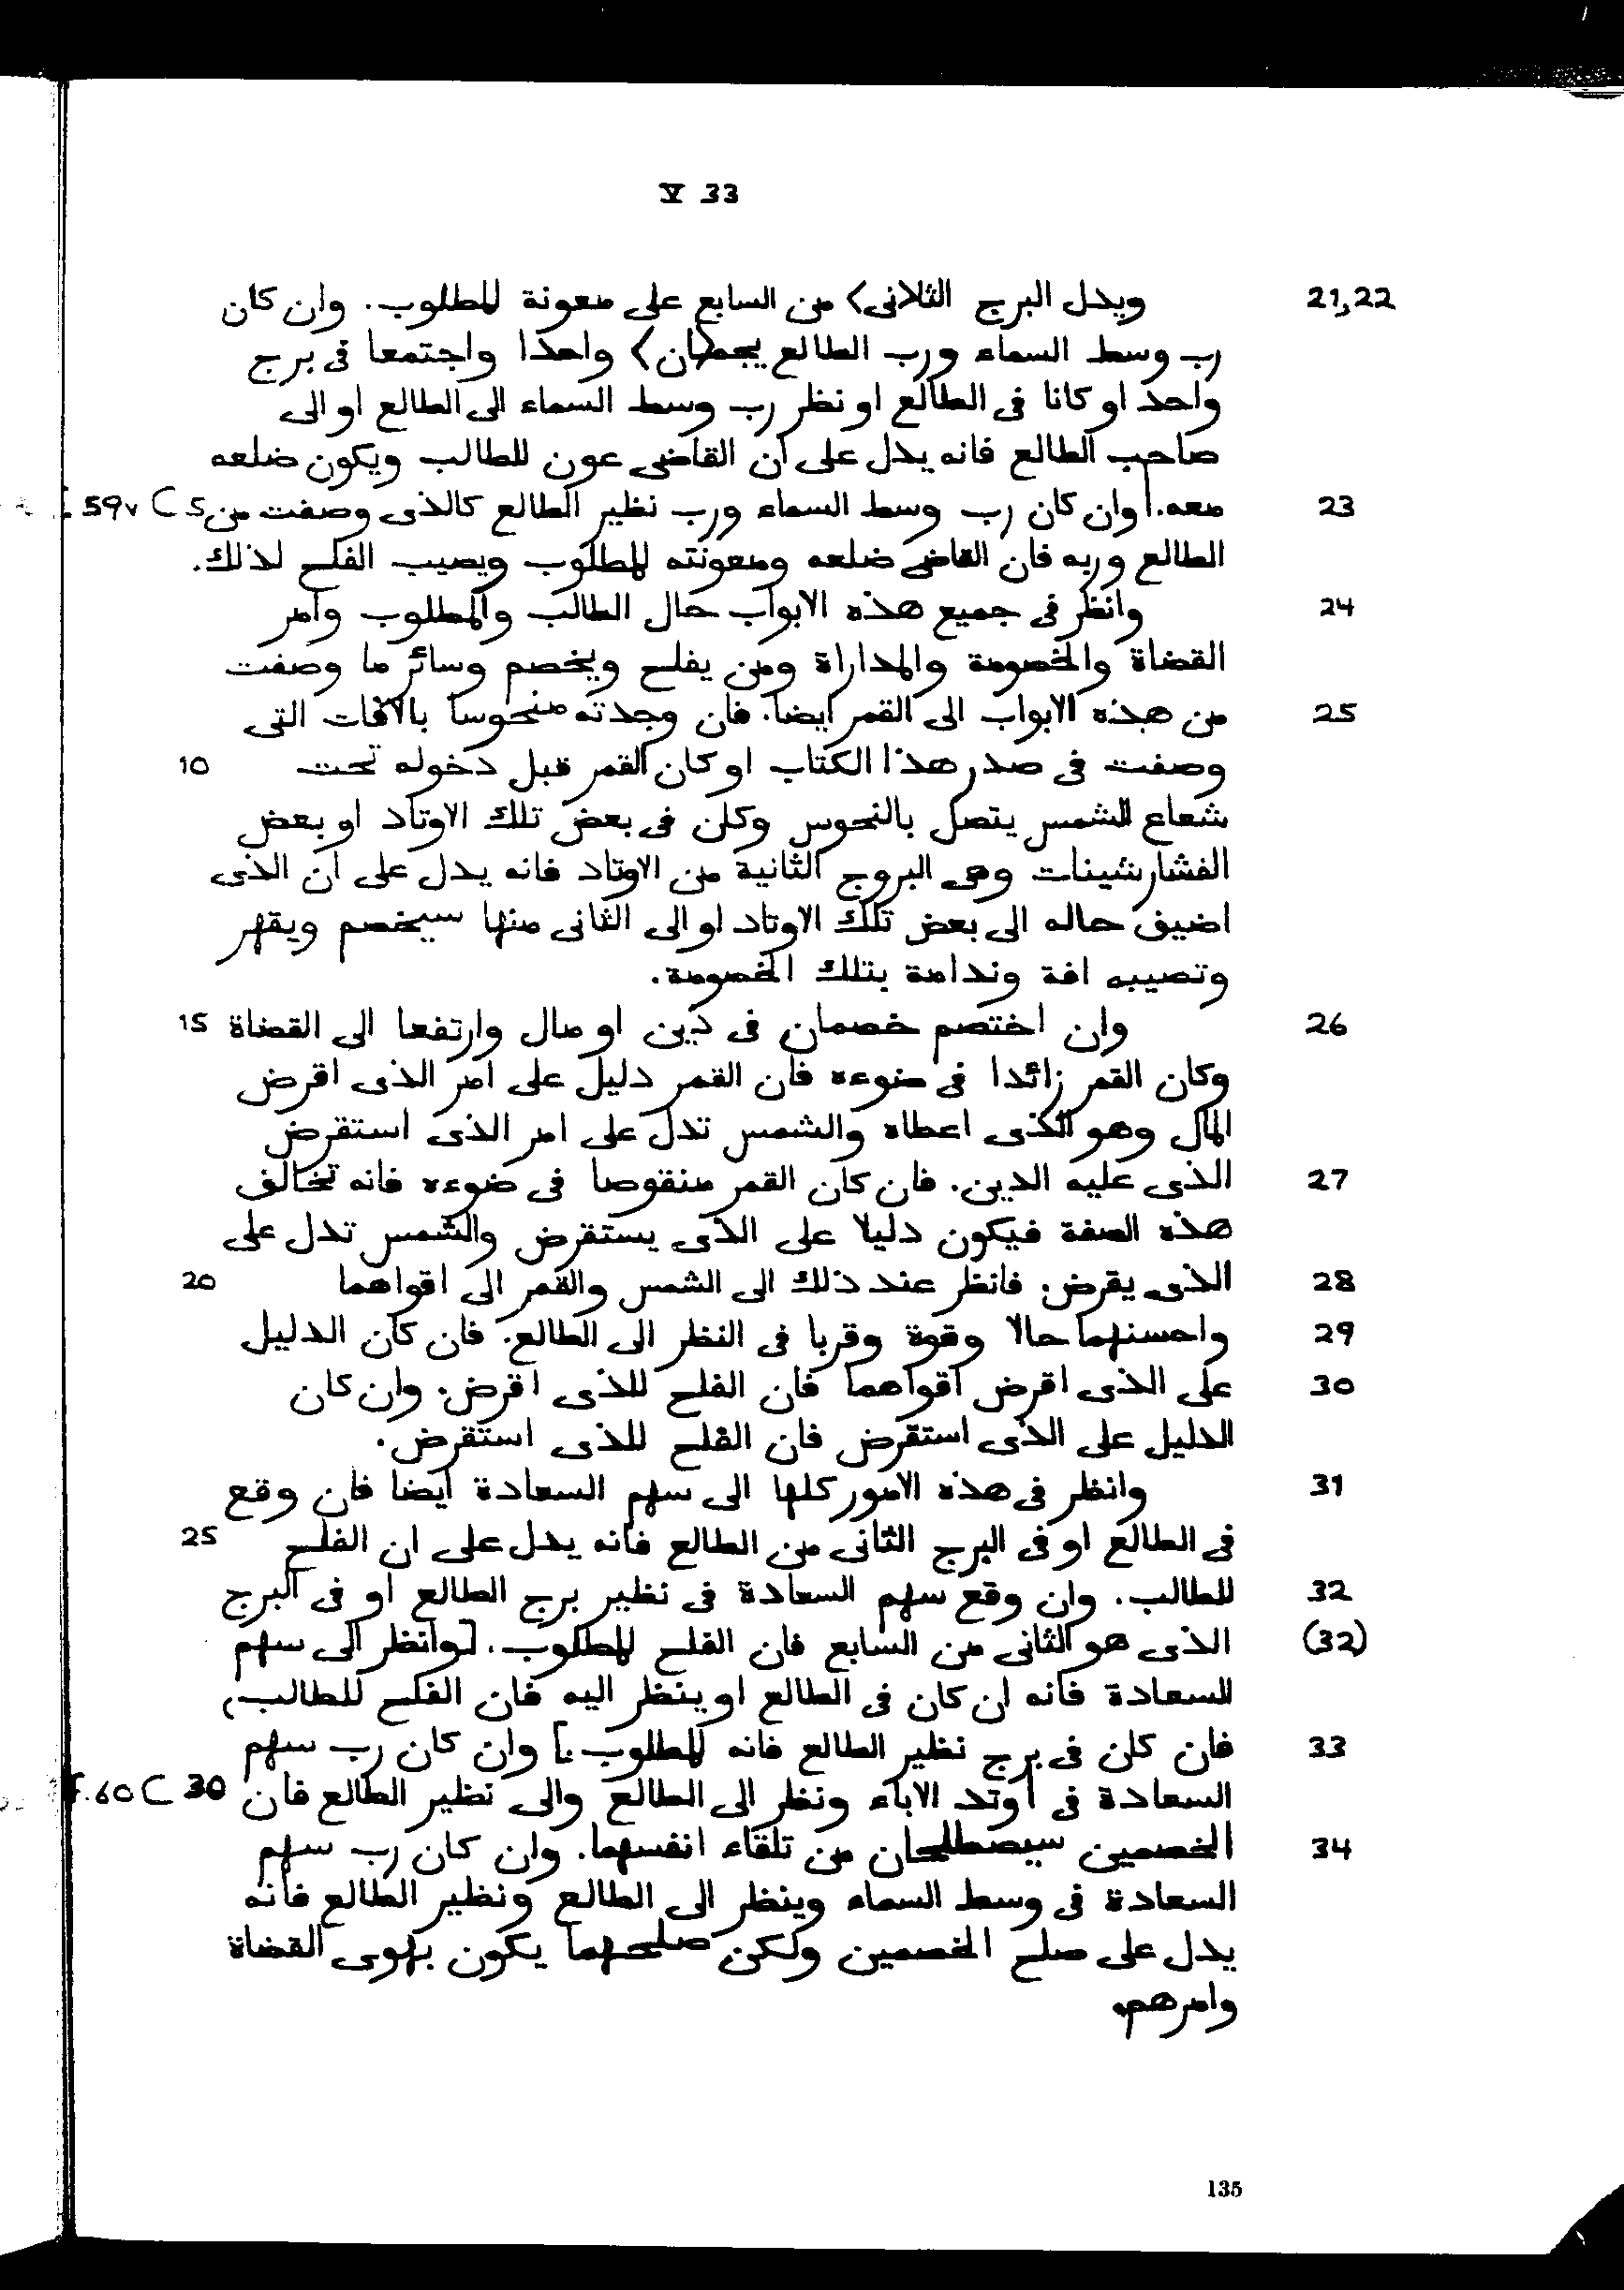 V 33
21,22 ويدل البرج الثا<نى> من السابع على معونة للمطلوب. وان كان
رب وسط السماء ورب الطالع يجمع<ان> واحدا واجتمعا فى برج
واحد او كانا فى الطالع او نظر رب وسط السماء الى الطالع او الى
صاحب الطالع فانه يدل على ان القاضى عون للطالب ويكون ضلعه
23 معه.| وان كان رب وسط السماء ورب نظير الطالع كالذى وصفت من 5 f. 59v C
الطالع وربه فان القاضى ضلعه ومعونته للمطلوب ويصيب الفلح لذلك.
24 وانظر فى جميع هذه الابواب حال الطالب والمطلوب وامر
القضاة والخصومة والمداراة ومن يفلح ويخصم وسائر ما وصفت
25 من هذه الابواب الى القمر ايضا. فان وجدته منحوسا بالآفات التى
وصفت فى صدر هذا الكتاب او كان القمر قبل دخوله تحت 10
شعاع الشمس يتصل بالنحوس وكان فى بعض تلك الاوتاد او بعض
الفشارشينات وهى البروج الثانية من الاوتاد فانه يدل على ان الذى
اضيف حاله الى بعض تلك الاوتاد او الى الثانى منها سيخصم ويقهر
وتصيبه افة وندامة بتلك الخصومة.
26 وان اختصم خصمان فى دين او مال وارتفعا الى القضاة 15
وكان القمر زائدا فى ضوءه فان القمر دليل على امر الذى اقرض
المال وهو الذى اعطاه والشمس تدل على امر الذى استقرض
27 الذى عليه الدين. فان كان القمر منقوصا فى ضوءه فانه تخالف
هذه الصفة فيكون دليلا على الذى يستقرض والشمس تدل على
28 الذى يقرض. فانظر عند ذلك الى الشمس والقمر الى اقواهما 20
29 واحسنهما حالا وقوة وقربا فى النظر الى الطالع. فان كان الدليل
30 على الذى اقرض اقواهما فان الفلح للذى اقرض. وان كان
الدليل على الذى استقرض فان الفلح للذى استقرض.
31 وانظر فى هذه الامور كلها الى سهم السعادة ايضا فان وقع
فى الطالع او فى البرج الثانى من الطالع فانه يدل على ان الفلح 25
32 للطالب. وان وقع سهم السعادة فى نظير برج الطالع او فى البرج
(32) الذى هو الثانى من السابع فان الفلح للمطلوب. [وانظر الى سهم
السعادة فانه ان كان فى الطالع او ينظر اليه فان الفلح للطالب،
33 فان كان فى برج نظير الطالع فانه للمطلوب.] وان كان رب سهم
السعادة فى | وتد الاباء ونظر الى الطالع والى نظير الطالع فان 30 f. 60 C
34 الخصمين سيصطلحان من تلقاء انفسهما. وان كان رب سهم
السعادة فى وسط السماء وينظر الى الطالع ونظير الطالع فانه
يدل على صلح الخصمين ولكن صلحهما يكون بهوى القضاة
وامرهم.
135